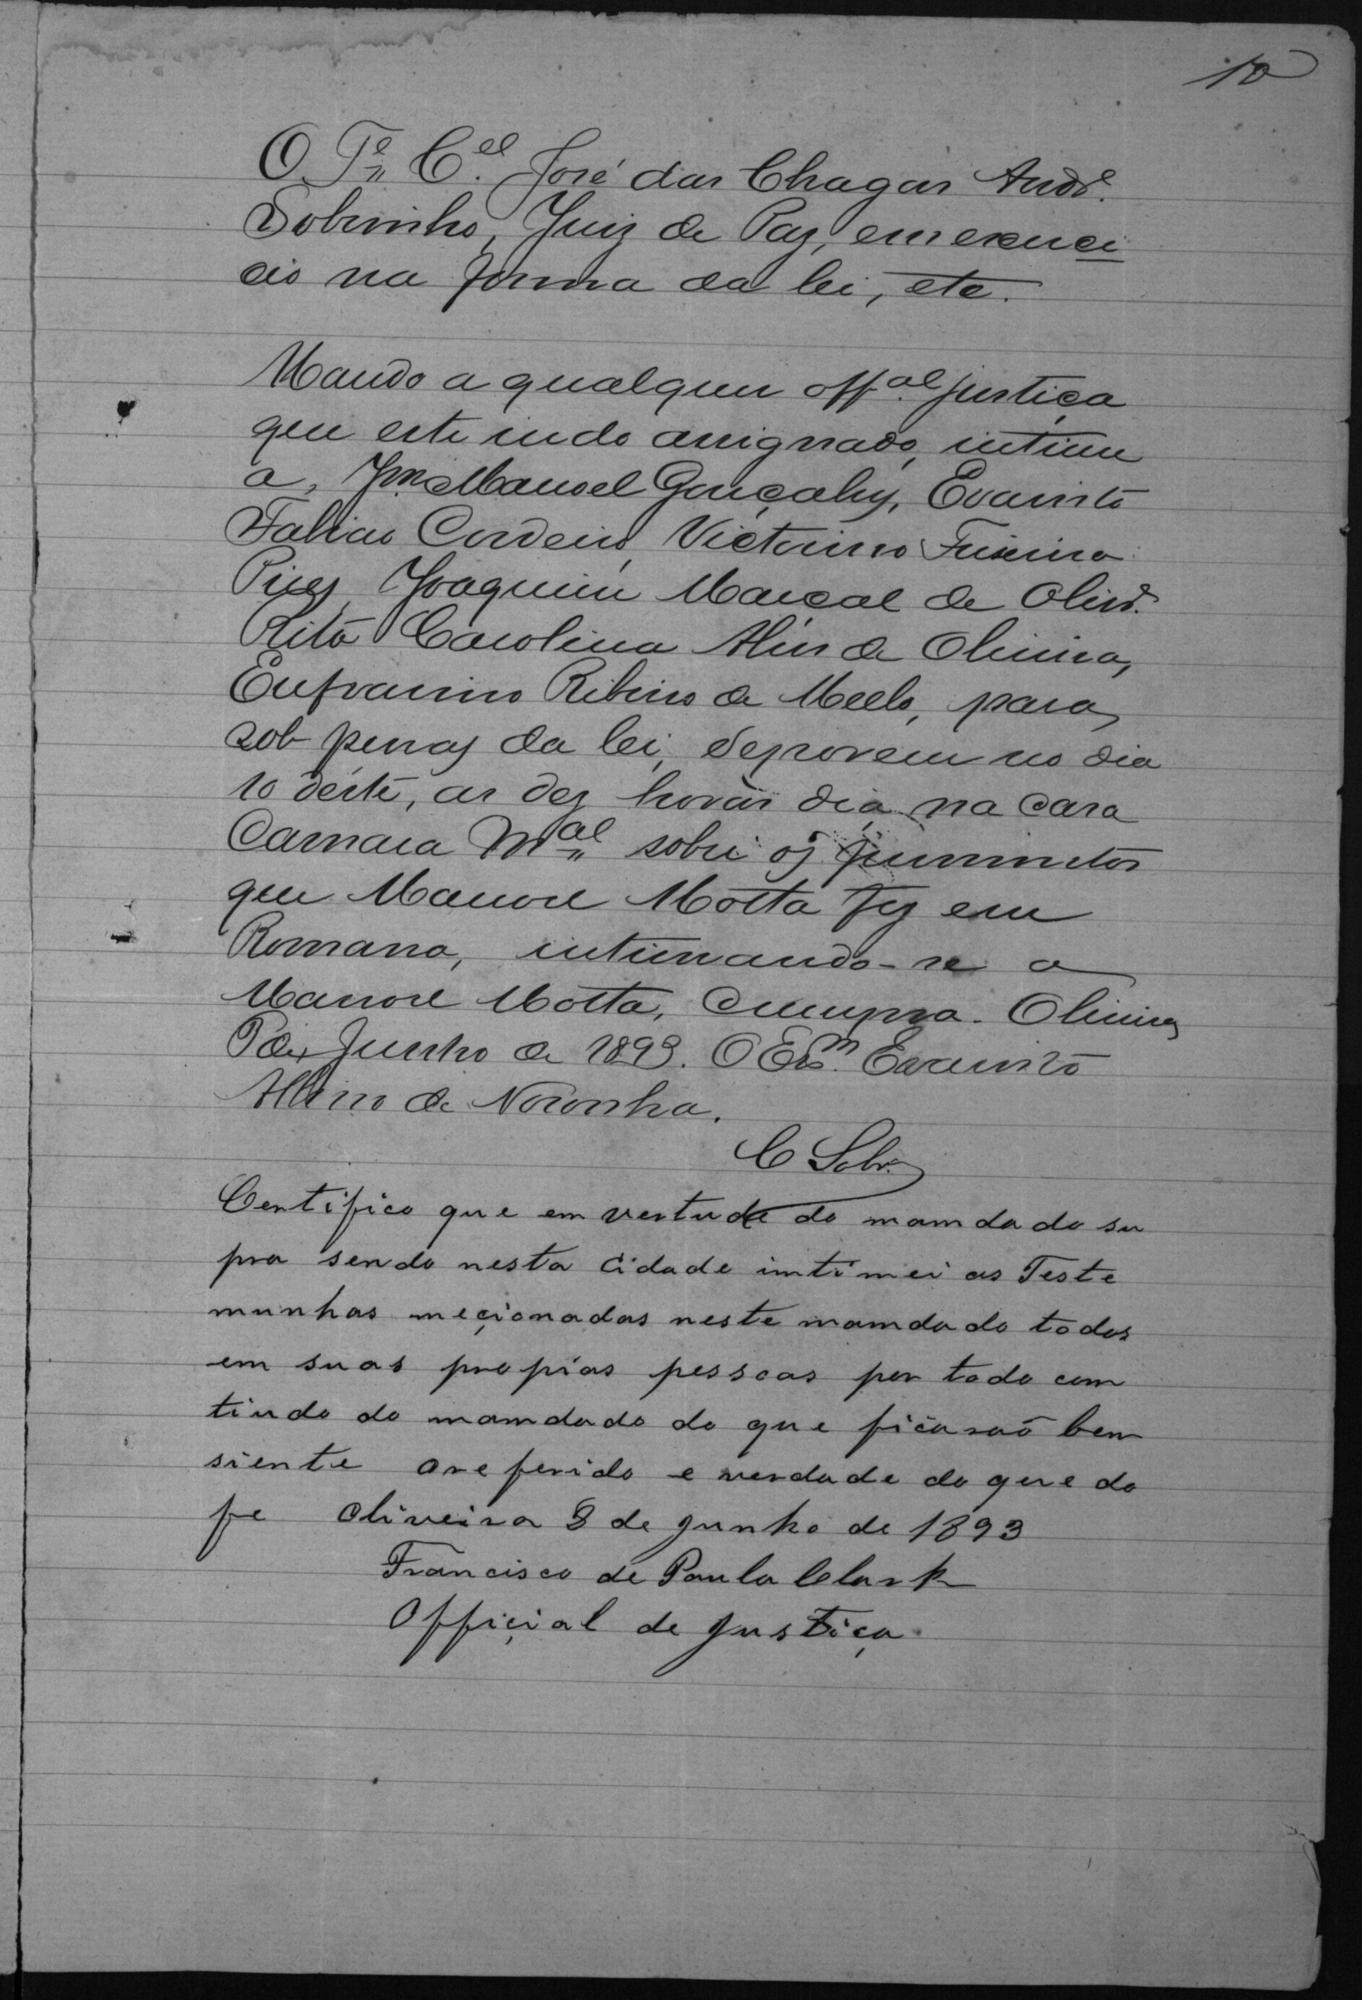 10
O Te. Cel. José das Chagas Andre.
Sobrinho, Juiz de Paz, em exerci
cio na forma da lei, etc.
Mando a qualquer offal. justiça
que este indo assignado, intime
a, Jm. Manoel Gonçalves, Evaristo
Fabiao Cordeiro, Victorino Teixeira
Pires, Joaquim Marçal de Olivra.
Rita Carolina Alves de Oliveira,
Eufrasino Ribeiro de Mello, para,
sob penas da lei, deporem no dia
10 déste, as dez horas dia, na casa
Camara Mal. sobre os ferimentos
que Manoel Motta fez em
Romana, intimando-se a
Manoel Motta, Cumpra. Oliveira
de Junho de 1893. O Esm. Evaristo
Albino de Noronha.
C Sobr.
Certifico que em vertude do mamdado su
pra sendo nesta cidade imtimei as Teste
munhas meçionadas neste mamdado todos
em suas propias pessoas por todo com
tiudo do mamdado do que ficaraõ bem
siente o referido e verdade do que do
fe Oliveira 8 de Junho de 1893
Francisco de Paula Clark
Offiçial de Justiça